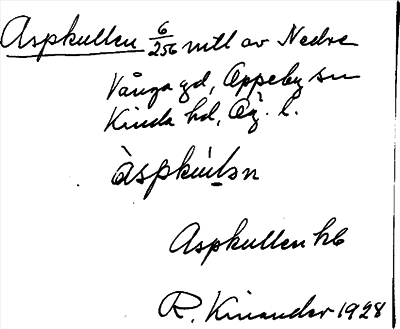 Aspkullen 6/256 mtl av Nedre
Vånga gd, Oppeby sn
Kinda hd, Ög. l.
àspkúlən
Aspkullen hb
R. Kinander 1928